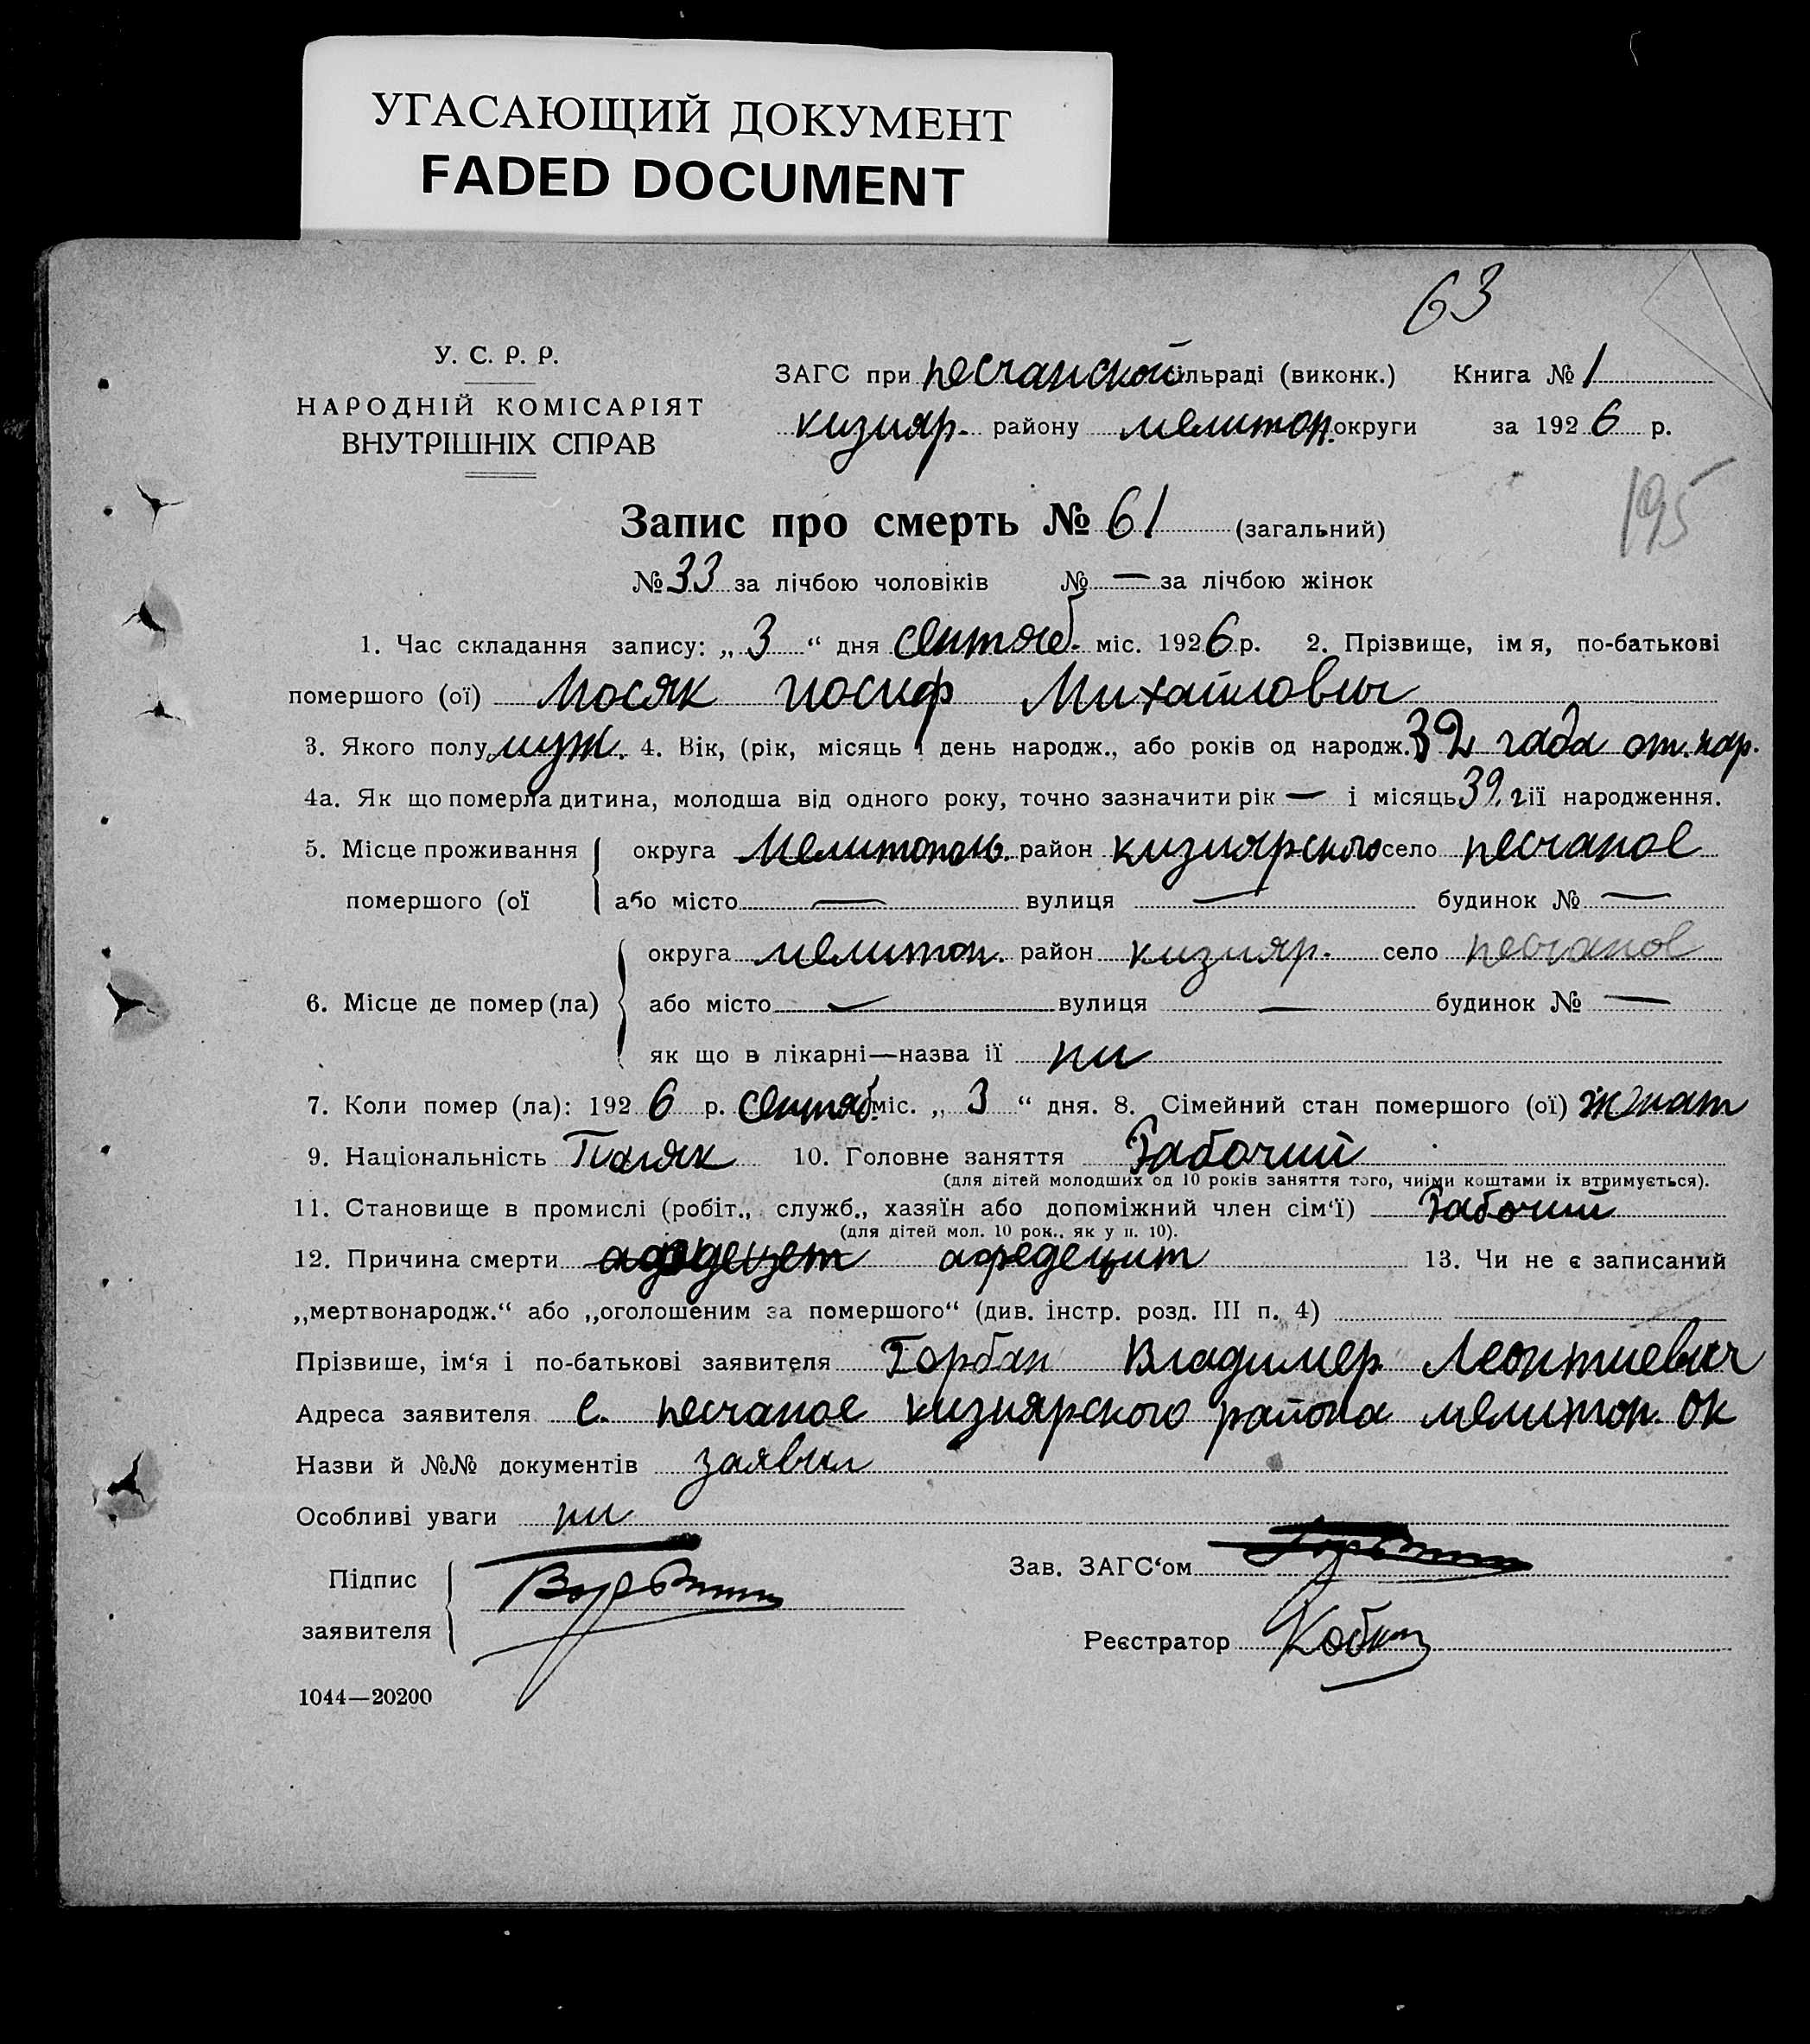 УГАСАЮЩИЙ ДОКУМЕНТ
FADED DOCUMENT
63
У. С. Р. Р.
НАРОДНІЙ КОМІСАРІЯТ
ВНУТРІШНІХ СПРАВ
ЗАГС при песчанской сільраді (виконк.) Книга № 1
кизияр. району мелитоп. округи за 1926 р.
195
Запис про смерть № 61 (загальний)
№ 33 за лічбою чоловіків № — за лічбою жінок
1. Час складання запису: „ 3 “ дня сентяб. міс. 1926 р. 2. Прізвище, імя, по-батькові
помершого (ої) Мосяк иосиф Михайлович
3. Якого полу муж. 4. Вік, (рік, місяць і день народж., або років од народж. 32 года от. нар.
4а. Як що померла дитина, молодша від одного року, точно зазначити рік — і місяць 39. її народження.
5. Місце проживання округа Мелитополь. район кизиярского село песчаное
помершого (ої або місто — вулиця — будинок № —
округа мелитоп. район кизияр. село песчаное
6. Місце де помер (ла) або місто — вулиця — будинок № —
як що в лікарні—назва ії ни
7. Коли помер (ла): 1926 р. сентяб. міс. „ 3 “ дня. 8. Сімейний стан помершого (ої) женат
9. Національність Поляк 10. Головне заняття Рабочий
(для дітей молодших од 10 років заняття того, чиіми коштами іх втримується).
11. Становище в промислі (робіт., служб., хазяїн або допоміжний член сім'ї) Рабочий
(для дітей мол. 10 рок., як у п. 10).
12. Причина смерти афедецит 13. Чи не є записаний
„мертвонародж.“ або „оголошеним за помершого“ (див. інстр. розд. III п. 4)
Прізвише, ім'я і по-батькові заявителя Горбан Владимер Леонтиевич
Адреса заявителя с. песчаное кизиярского района мелитоп. ок
Назви й №№ документів заявил
Особливі уваги ни
Підпис
заявителя
Зав. ЗАГС'ом
Реєстратор
1044—20200